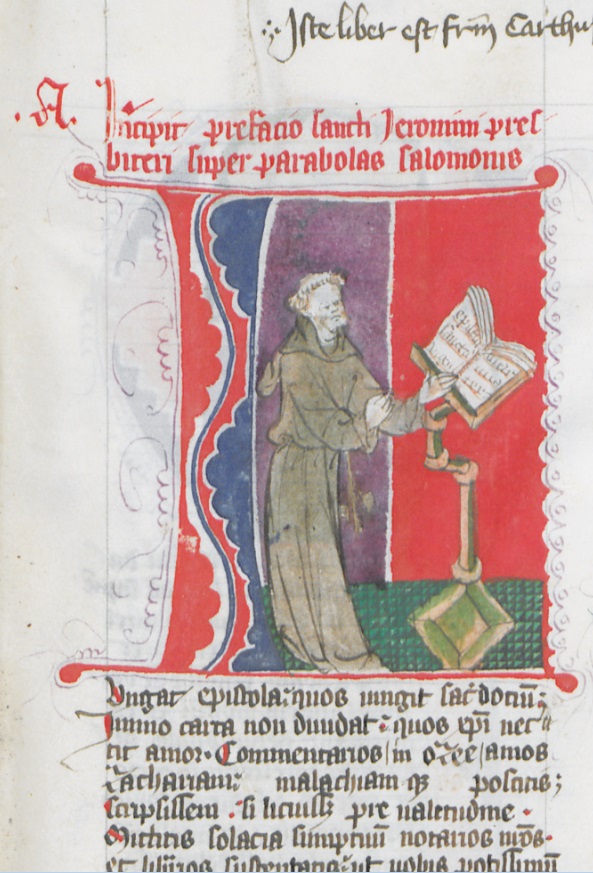 Iste liber est frm̄ Carthu
.A.
Incipit prefacio sancti Jeronimi pres
biteri super parabolas salomonis
Vngat epistola: quos iungit sac̄dociū;
Immo carta non diuidat: quos xp̄i nec
tit amor. Commentarios in ozee amos
zachariam: malachiam qꝫ poscitis;
scripsissem. si licuissꝫ pre ualetudine.
Mittitis solacia simptuū notarios nr̄os.
et librios sustentatis: ut uobis potissimū